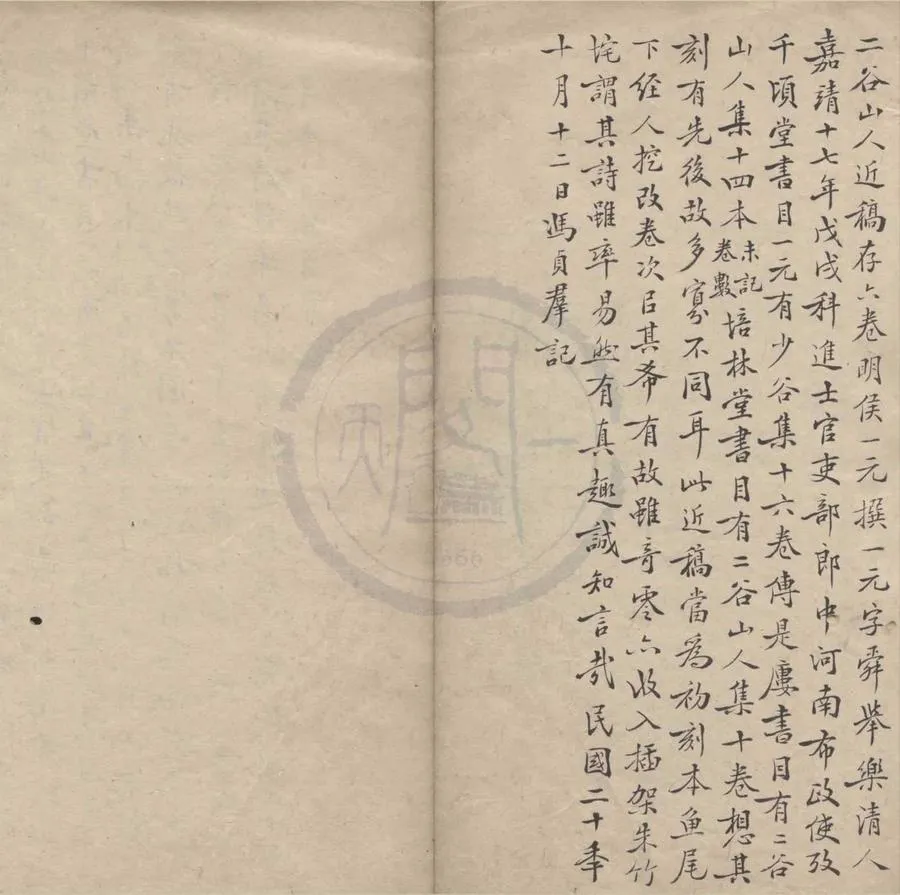 二谷山人近稿存六卷明侯一元撰一元字舜举樂清人
嘉靖十七年戊戌科進士官吏部郎中河南布政使攷
千頃堂書目一元有少谷集十六卷傳是廔書目有二谷
山人集十四本未記卷數培林堂書目有二谷山人集十卷想其
刻有先後故多寡不同耳此近稿當為初刻本鱼尾
下经人挖改卷次㠯其希有故雖奇零亦收入插架朱竹
垞謂其詩雖率易然有真趣誠知言哉民國二十季
十月十二日馮貞羣記
天一閣